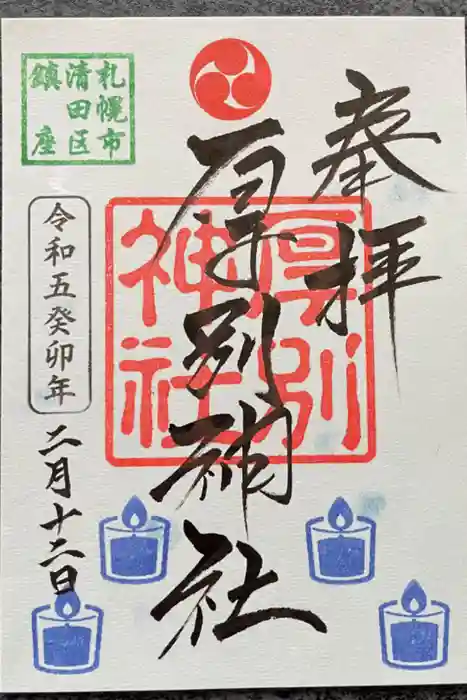 奉拝
厚別神社
厚別
神社
札幌市
清田区
鎮座
令和五癸卯年
二月十二日